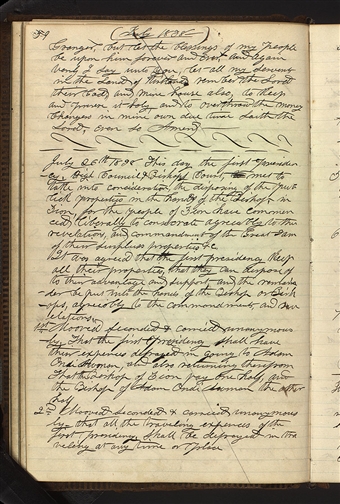 ( July 1838 )
Stranger, but let the blessings of my people
be upon him forever and Ever, and again
verily I say unto you, let all my servants
in the Land of Kirtland remember the Lord
their God, and mine house also, to Keep
and preserve it holy, and to overthrow the money
Changers in mine own due time Saith the
Lord; Even So Amen.
July 26th 1838 This day the first presiden-
cy, High Council, & Bishops Court, met to
take into consideration the disposing of the pub-
lick properties in the hands of the Bishop in
Zion, for the people of Zion have commen-
ced liberally to consecrate agreeably to the
revelations, and commandments of the Great I am
of their surpluss properties &c.
It was agreed that the first presidency Keep
all their properties, that they can dispose of
to their advantage and support, and the remain-
der be put into the hands of the Bishop or Bish-
ops, agreeably to the commandments, and rev-
elations.
1st Mooved seconded & carried unanymously
That the first Presidency shall have
their expences defrayed in going to Adam
Ondi Ahman, and also returning therefrom
That the Bishop of Zion pay one half, and
the Bishop of Adam Ondi Ahman the other
half
2nd Mooved seconded & carried unanymous
ly that all the traveling expences of the
first presidency shall be defrayed in tra
veling at any time or place